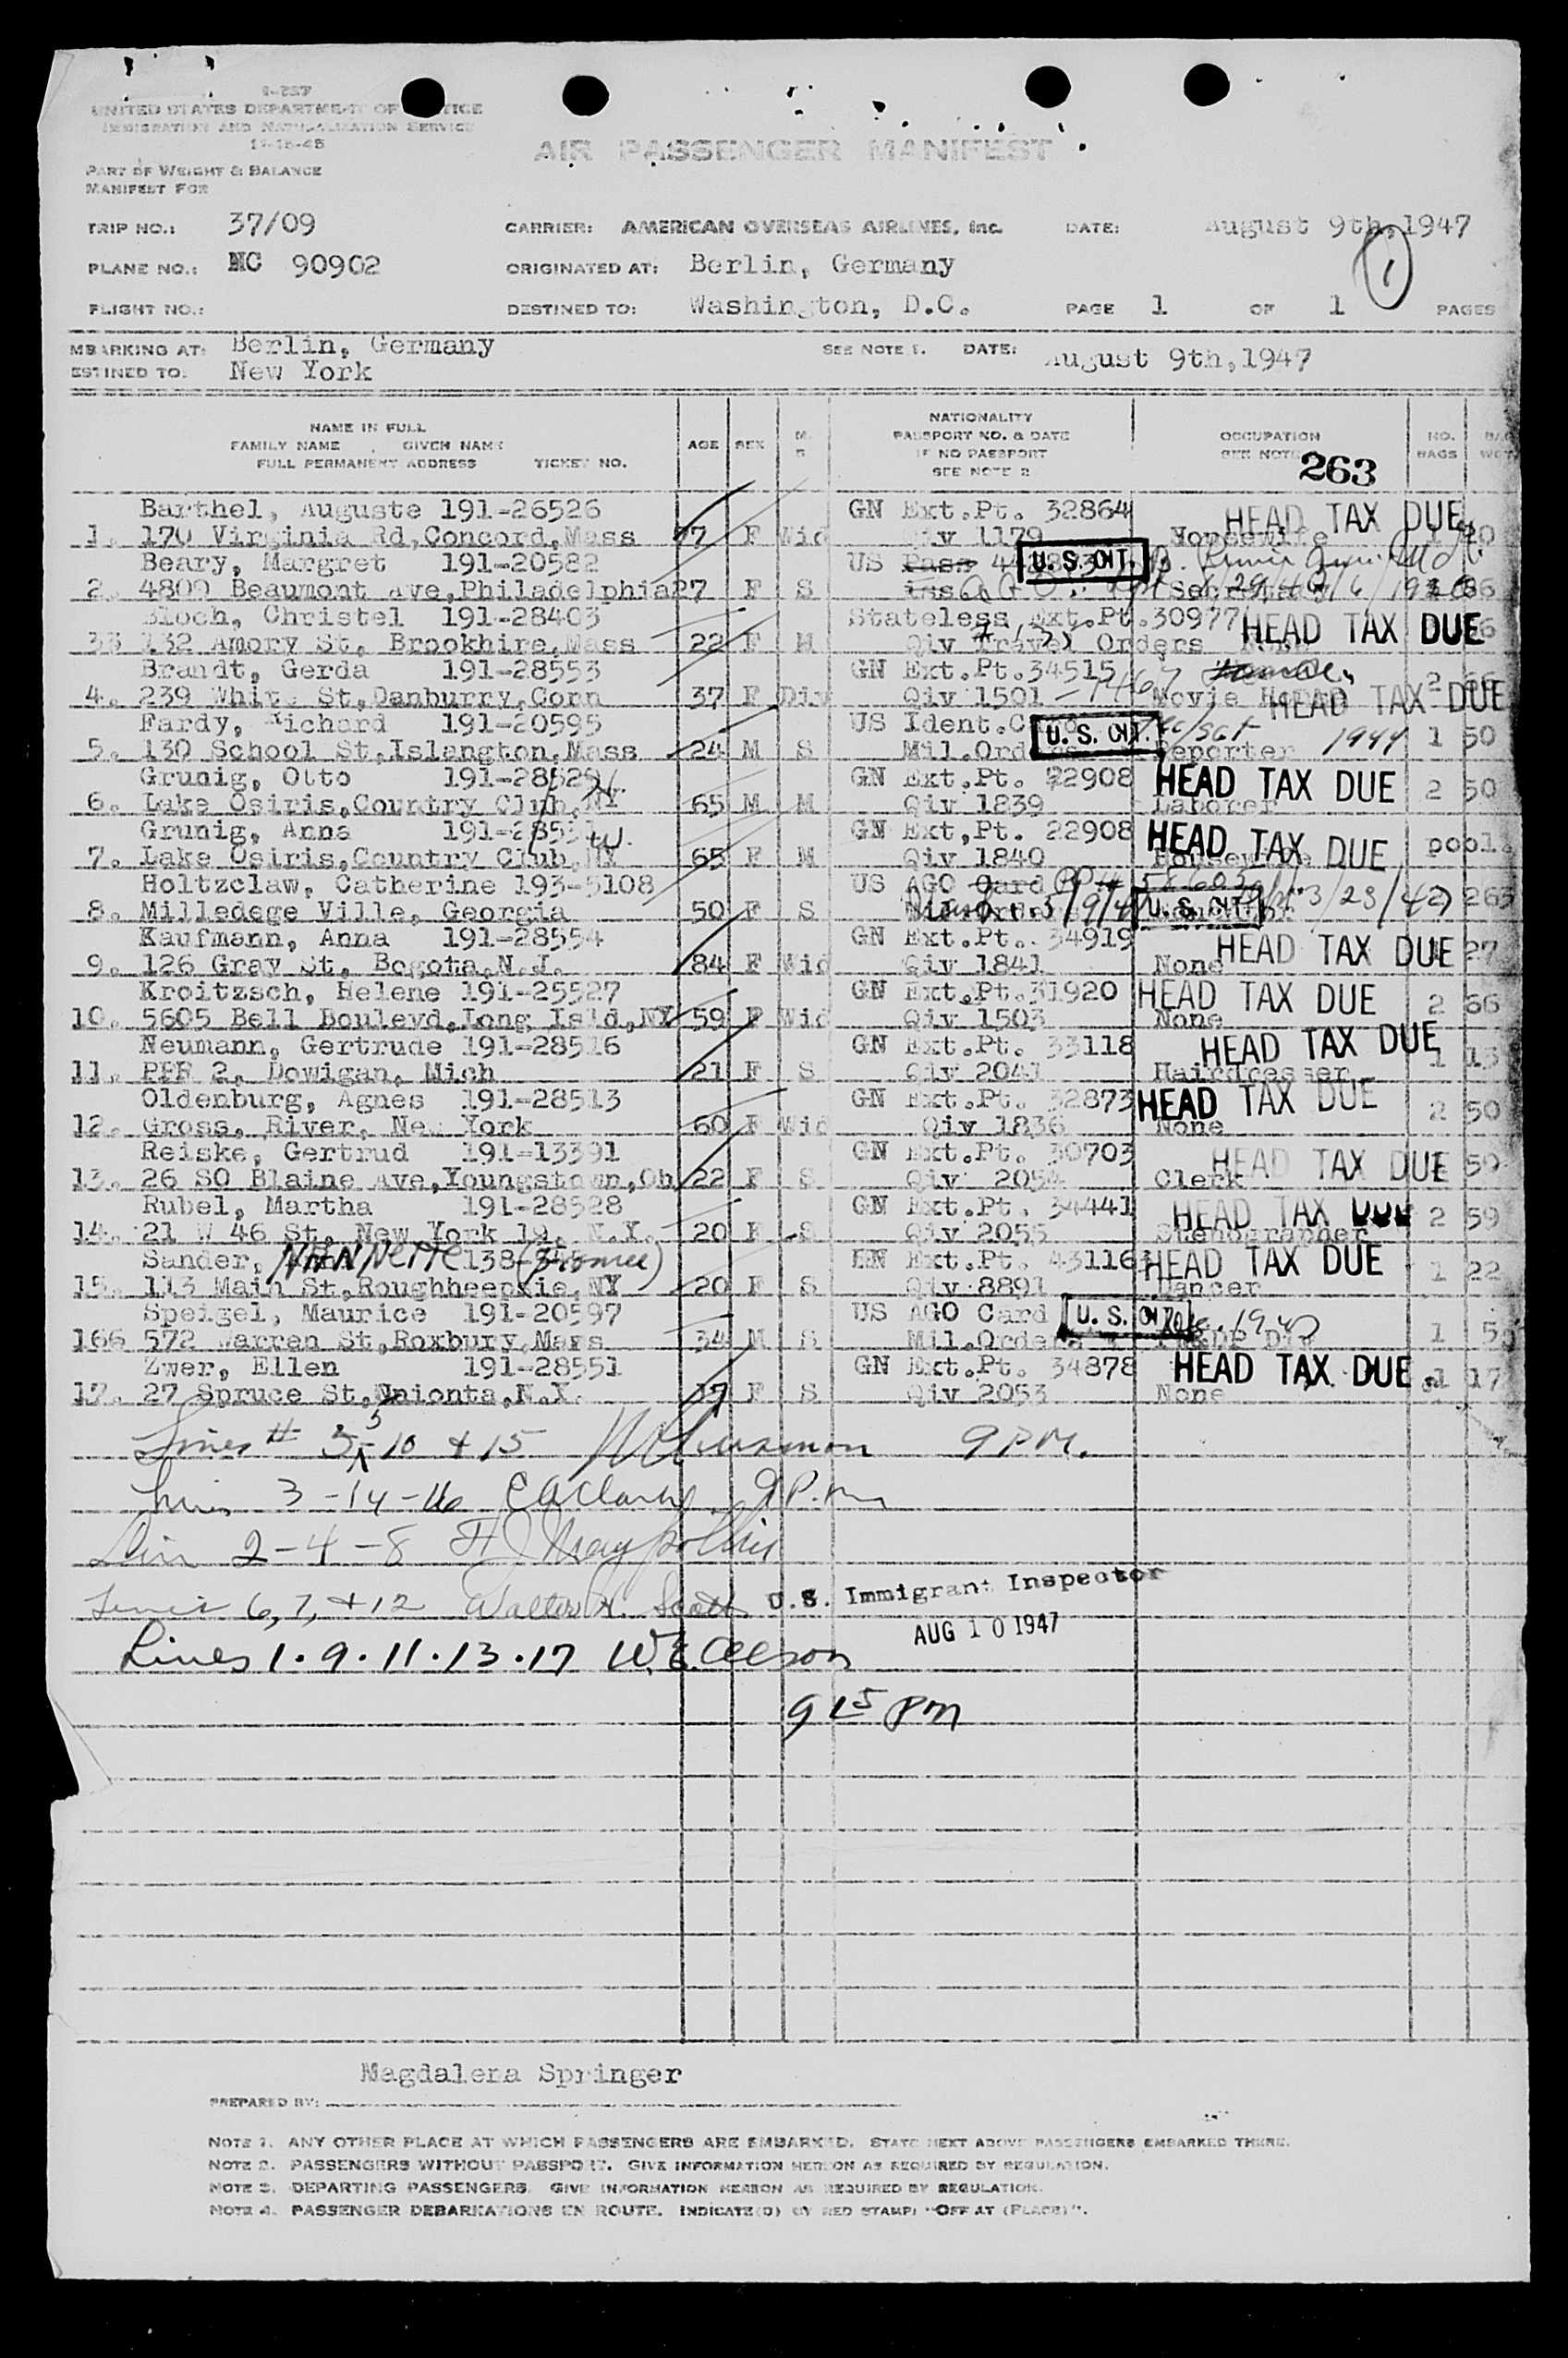 I-227
UNITED STATES DEPARTMENT OF JUSTICE
IMMIGRATION AND NATURALIZATION SERVICE
PART OF WEIGHT & BALANCE
MANIFEST FOR
AIR PASSENGER MANIFEST
TRIP NO.: 37/09 CARRIER: AMERICAN OVERSEAS AIRLINES, Inc. DATE: August 9th, 1947
PLANE NO.: NC 90902 ORIGINATED AT: Berlin, Germany 1
FLIGHT NO.: DESTINED TO: Washington, D.C. PAGE 1 OF 1 PAGES
MBARKING AT: Berlin, Germany SEE NOTE 1. DATE: August 9th,1947
ESTINED TO: New York
NAME IN FULL
FAMILY NAME GIVEN NAME
FULL PERMANENT ADDRESS TICKET NO. AGE SEX M. S NATIONALITY PASSPORT NO. & DATE IF NO PASSPORT SEE NOTE 2 OCCUPATION SEE NOTE NO. BAGS
263
Barthel, Auguste 191-26526 GN Ext.Pt. 32864 HEAD TAX DUE
1. 170 Virginia Rd,Concord,Mass 77 F Wid Qiv 1179 Housewife
Beary, Margret 191-20582 US Pass U. S. CIT.
2. 4800 Beaumont Ave,Philadelphia 27 F S Secretary
Bloch, Christel 191-28403 Stateless Ext.Pt.30977 HEAD TAX DUE
33 132 Amory St, Brookhire,Mass 22 F M Qiv Travel Orders
Brandt, Gerda 191-28553 GN Ext.Pt.34515
4. 239 White St,Danburry,Conn 37 F Div Qiv 1501 Movie HEAD TAX DUE 2
Fardy, Richard 191-20595 US Ident.Card U. S. CIT.
5. 130 School St,Islangton,Mass 24 M S Mil.Orders Reporter 1944 1 50
Grunig, Otto 191-28529 GN Ext.Pt. 22908 HEAD TAX DUE
6. Lake Osiris,Country Club,NY 65 M M Qiv 1839 Laborer 2 50
Grunig, Anna GN Ext,Pt. 22908 HEAD TAX DUE
7. Lake Osiris,Country Club,NY 65 F M Qiv 1840 Housewife pool.
Holtzclaw, Catherine 193-5108 US AGO Card
8. Milledege Ville, Georgia 50 F S U. S. CIT. 3/23/47 2 263
Kaufmann, Anna 191-28554 GN Ext.Pt. 34919 HEAD TAX DUE
9. 126 Gray St, Bogota,N.J. 84 F Wid Qiv 1841 None 27
Kroitzsch, Helene 191-25527 GN Ext.Pt.31920 HEAD TAX DUE
10. 5605 Bell Boulevd,Long Is'd,NY 59 F Wid Qiv 1503 None 2 66
Neumann, Gertrude 191-28516 GN Ext.Pt. 33118 HEAD TAX DUE
11. PFR 2, Dowigan, Mich 21 F S Qiv 2041 Hairdresser 1 13
Oldenburg, Agnes 191-28513 GN Ext.Pt. 32873 HEAD TAX DUE
12. Gross, River, New York 60 F Wid Qiv 1836 None 2 50
Reiske, Gertrud 191-13391 GN Ext.Pt. 30703 HEAD TAX DUE
13. 26 SO Blaine Ave,Youngstown,Oh 22 F S Qiv 2054 Clerk 50
Rubel, Martha 191-28528 GN Ext.Pt. 34441 HEAD TAX DUE
14. 21 W 46 St, New York 19, N.Y. 20 F S Qiv 2055 Stenographer 2 59
Sander, NANNETTE Ext.Pt. 43116 HEAD TAX DUE
15. 113 Main St,Roughheepkie,NY 20 F S Qiv 8891 Dancer 1 22
Speigel, Maurice 191-20597 US AGO Card U. S. CIT.
166 572 Warren St,Roxbury,Mass 34 M S Mil.Orders 1
Zwer, Ellen 191-28551 GN Ext.Pt. 34878 HEAD TAX DUE
17. 27 Spruce St,Unionta,N.Y. 17 F S Qiv 2053 None 1 17
Lines # 5-10 & 15 9 PM.
Lines 3-14-16 9 P.m
2-4-8
Lines 6,7,+12 Walter H. Scott U.S. Immigrant Inspector
AUG 10 1947
Lines 1.9.11.13.17
9 15 PM
Magdalena Springer
PREPARED BY:
NOTE 1. ANY OTHER PLACE AT WHICH PASSENGERS ARE EMBARKED. STATE NEXT ABOVE PASSENGERS EMBARKED THERE.
NOTE 2. PASSENGERS WITHOUT PASSPORT. GIVE INFORMATION HEREON AS REQUIRED BY REGULATION.
NOTE 3. DEPARTING PASSENGERS. GIVE INFORMATION HEREON AS REQUIRED BY REGULATION.
NOTE 4. PASSENGER DEBARKATIONS EN ROUTE. INDICATE(D) BY RED STAMP: "OFF AT (PLACE)".